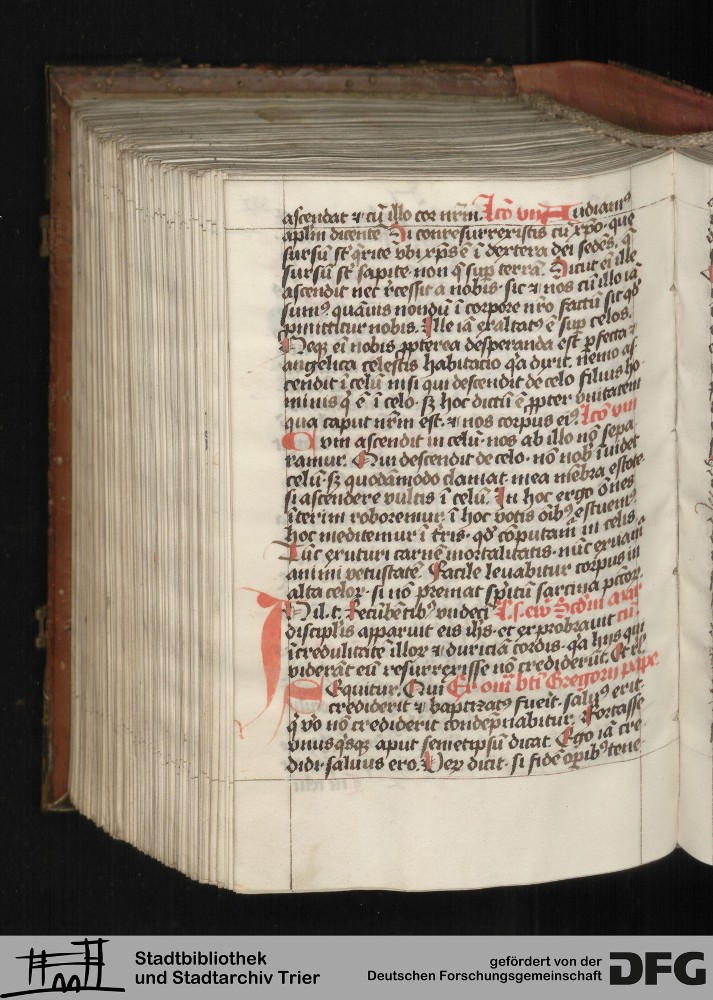 ascendat ⁊ cū illo cor nr̄m. Lcō vijᵃ Audiamꝰ
aplm̄ dicentē Si conresurrexistis cū xpo· que
sursū st̄ q̄rite vbi xp̄s ē ī dextera dei sedēs. q̄
sursū st̄ sapite· non q̄ suꝑ terrā. Sicut eī ille
ascendit nec rēcessit a nobis· sic ⁊ nos cū illo iā
sumꝰ quāuis nondū ī corpore nr̄o factū sit qd̓
ꝓmittitur nobis. Ille iā exaltatꝰ ē suꝑ celos.
Neqꝫ eī nobis ꝓpterea desperanda est ꝑfecta ⁊
angelica celestis habitacio q̇a dixit. nemo as
cendit ī celū nisi qui descendit de celo filius ho
minis q̇ ē ī celo· sꝫ hoc dictū ē ꝓpter vnitatem
qua caput nr̄m est· ⁊ nos corpus eiꝰ. Lcō viij
Cum ascendit in celū· nos ab illo nō sepa
ramur. Qui descendit de celo· nō nob̄ īuidet
celū· sꝫ quodāmodo clamat· mea mēbra estote
si ascendere vultis ī celū. In hoc ergo ōnes
īterim roboremur· ī hoc votis oībꝰ estuemꝰ
hoc meditemur ī t̄ris· qd̓ cōputam̄ in celis
Tūc exuturi carnē mortalitatis· nūc exuam̄
animi vetustatē. Facile leuabitur corpus in
alta celoꝝ· si nō premat spiritū sarcina pctōꝝ.
In il. t. Recūbētibꝰ vndeci L. s. ew̄ Scdm̄ marc
discipl̓is apparuit eis ihs· et exprobrauit cū
īcredulitatē illoꝝ ⁊ duriciā cordis· q̇a hijs qui
viderāt eū resurrexisse nō crediderūt. Et rl̓
Sequitur. Qui Ex om̄ btī Gregorij pape.
crediderit ⁊ baptizatꝰ fueīt· saluꝰ erit·
q̇ vo nō crediderit condēpnabitur. Fortasse
vnusq̇sqꝫ aput semetipsū dicat. Ego iā cre
didi· saluus ero. Veꝝ dicit· si fidē oꝑibꝰ tene
Stadtbibliothek
und Stadtarchiv Trier
gefördert von der
Deutschen Forschungsgemeinschaft DFG